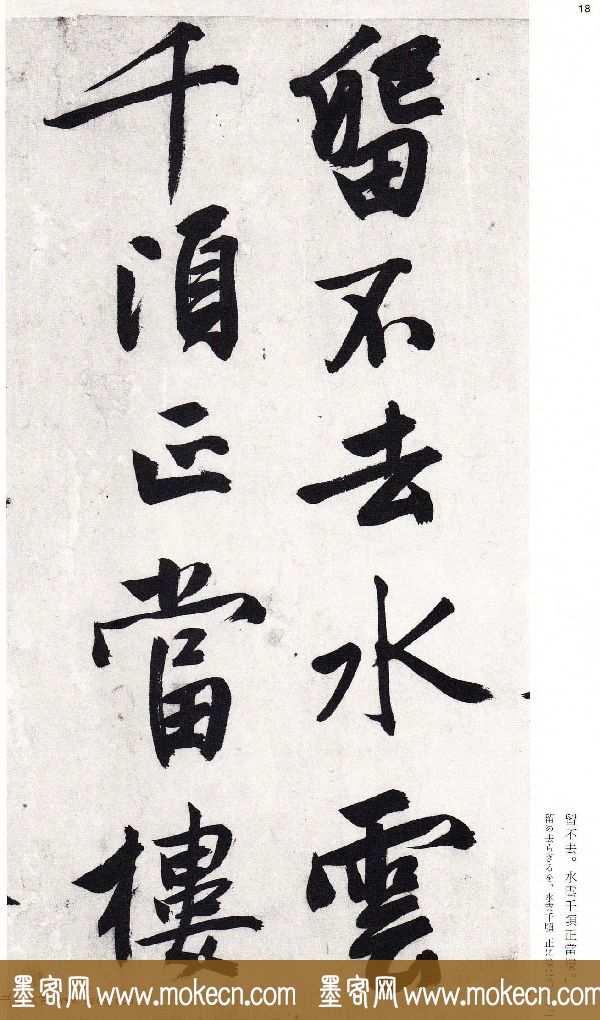 18
留不去水雲
千頃正當樓
留不去。水雲千頃正當樓
墨客网 www.mokecn.com 墨客网 www.mokecn.com